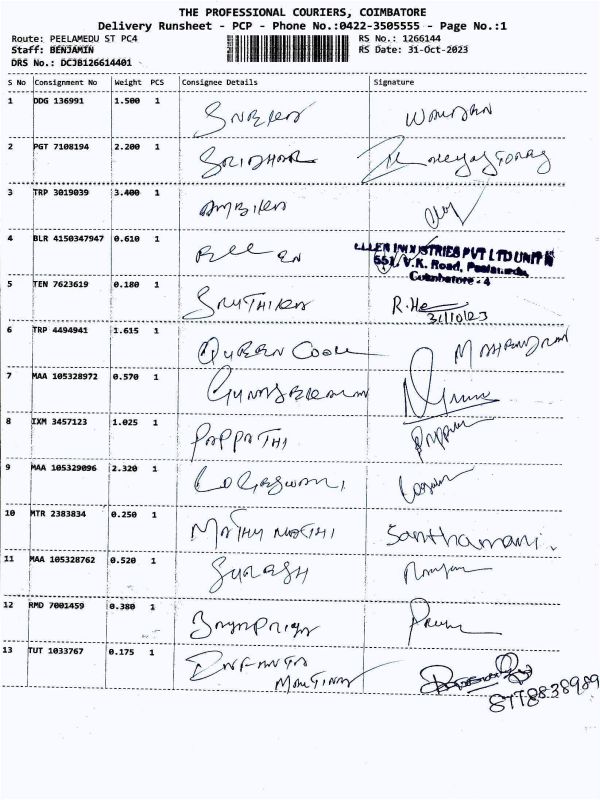 THE PROFESSIONAL COURIERS, COIMBATORE
Delivery Runsheet - PCP - Phone No.:0422-3505555 - Page No.:1
Route: PEELAMEDU ST PC4 RS No.: 1266144
Staff: BENJAMIN RS Date: 31-Oct-2023
DRS No.: DCJB126614401
S No Consignment No Weight PCS Consignee Details Signature
1 DDG 136991 1.500 1
2 PGT 7108194 2.200 1 SRIDHAR
3 TRP 3019039 3.400 1 AMBIKA
4 BLR 4150347947 0.610 1 ELLEN INDUSTRIES PVT LTD UNIT IV
551, V.K. Road, Peelamedu,
Coimbatore - 4
5 TEN 7623619 0.180 1 SRUTHIKA R.He
31/10/23
6 TRP 4494941 1.615 1 QUEEN COOL MAHENDRAN
7 MAA 105328972 0.570 1 GUNASEKARAN
8 IXM 3457123 1.025 1 PAPPATHI
9 MAA 105329096 2.320 1 LOGESWARI
10 MTR 2383834 0.250 1 MATHUMATHI Santhamani.
11 MAA 105328762 0.520 1 SURESH
12 RMD 7001459 0.380 1 JAYAPRIYA
13 TUT 1033767 0.175 1 INFANTA
MARTINA
8778838989